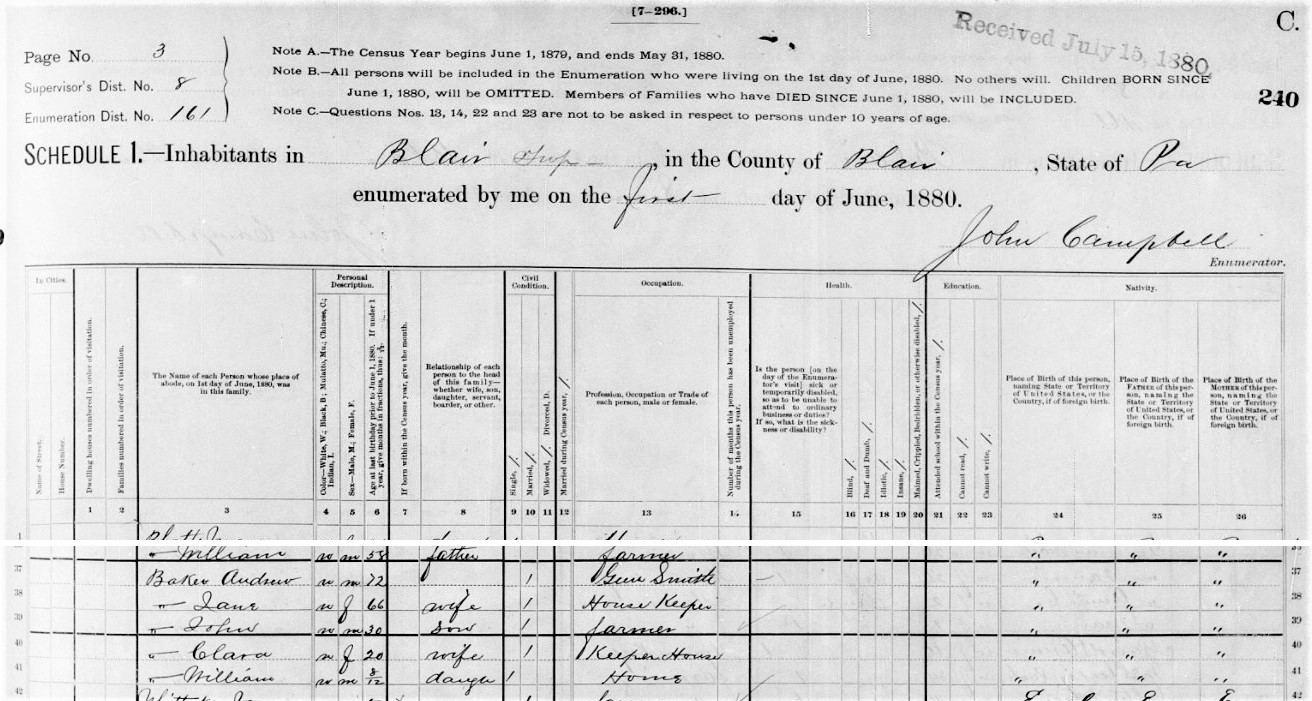 [7-296.]
C.
Received July 15, 1880
Page No. 3
Supervisor's Dist. No. 8
Enumeration Dist. No. 161
Note A.—The Census Year begins June 1, 1879, and ends May 31, 1880.
Note B.—All persons will be included in the Enumeration who were living on the 1st day of June, 1880. No others will. Children BORN SINCE
June 1, 1880, will be OMITTED. Members of Families who have DIED SINCE June 1, 1880, will be INCLUDED.
Note C.—Questions Nos. 13, 14, 22 and 23 are not to be asked in respect to persons under 10 years of age.
240
SCHEDULE 1.—Inhabitants in Blair Twp, in the County of Blair, State of Pa
enumerated by me on the first day of June, 1880.
John Campbell
Enumerator.
In Cities.
Name of Street.
House Number.
Dwelling houses numbered in order of visitation.
Families numbered in order of visitation.
The Name of each Person whose place of
abode, on 1st day of June, 1880, was
in this family.
Personal
Description.
Color—White, W.; Black, B.; Mulatto, Mu.; Chinese, C.;
Indian, I.
Sex—Male, M.; Female, F.
Age at last birthday prior to June 1, 1880. If under 1
year, give months in fractions, thus:
If born within the Census year, give the month.
Relationship of each
person to the head
of this family—
whether wife, son,
daughter, servant,
boarder, or other.
Civil
Condition.
Single, /.
Married, /.
Widowed, /. Divorced, D.
Married during Census year, /.
Occupation.
Profession, Occupation or Trade of
each person, male or female.
Number of months this person has been unemployed
during the Census year.
Health.
Is the person [on the
day of the Enumera-
tor's visit] sick or
temporarily disabled,
so as to be unable to
attend to ordinary
business or duties?
If so, what is the sick-
ness or disability?
Blind, /.
Deaf and Dumb, /.
Idiotic, /.
Insane, /.
Maimed, Crippled, Bedridden, or otherwise disabled, /.
Education.
Attended school within the Census year, /.
Cannot read, /.
Cannot write, /.
Nativity.
Place of Birth of this person,
naming State or Territory
of United States, or the
Country, if of foreign birth.
Place of Birth of the
FATHER of this per-
son, naming the
State or Territory
of United States, or
the Country, if of
foreign birth.
Place of Birth of the
MOTHER of this per-
son, naming the
State or Territory
of United States, or
the Country, if of
foreign birth.
1 2 3 4 5 6 7 8 9 10 11 12 13 14 15 16 17 18 19 20 21 22 23 24 25 26
" William w m 58 father farmer " " "
37 Baker Andrew w m 72 / Gun Smith " " " 37
38 " Jane w f 66 wife / House Keeper " " " 38
39 " John w m 30 son / farmer " " " 39
40 " Clara w f 20 wife / Keeper House " " " 40
41 " William w m 8/12 daugh / Home " " " 41
42